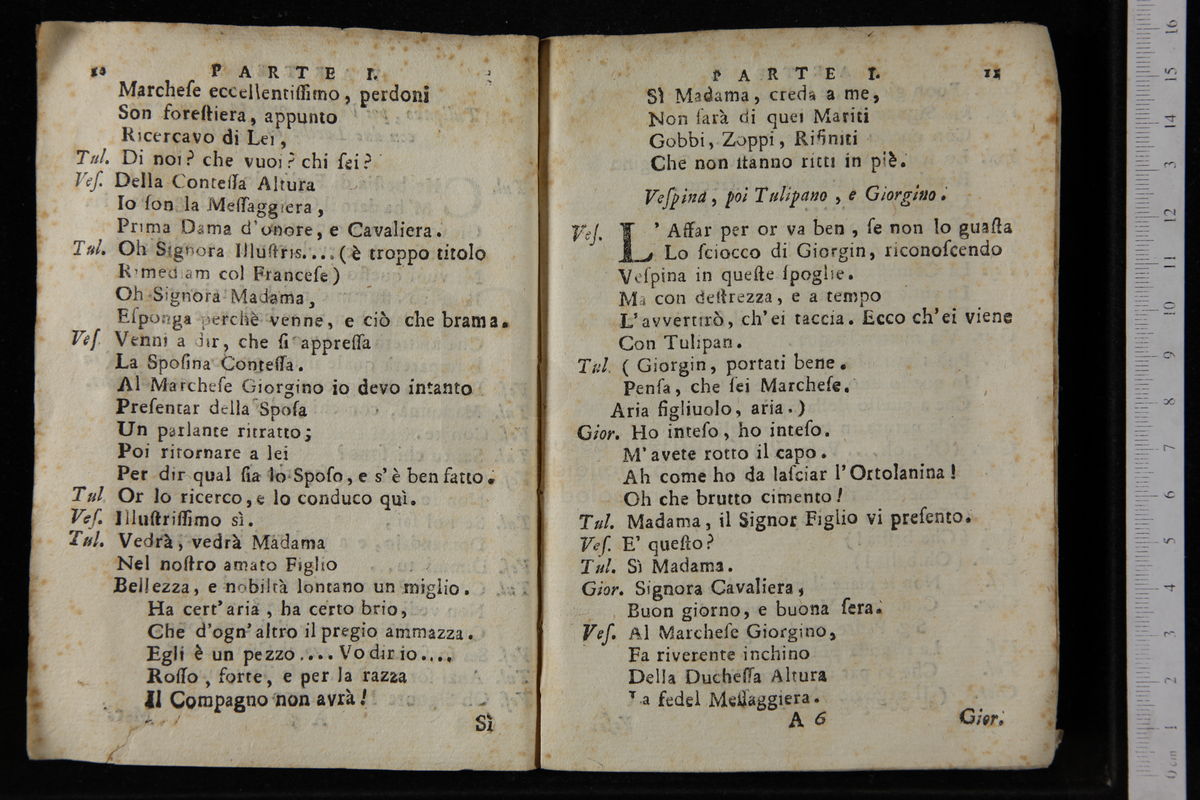 10 PARTE I.
Marcheſe eccellentiſſimo, perdoni
Son foreſtiera, appunto
Ricercavo di Lei,
Tul. Di noi? che vuoi? chi ſei?
Veſ. Della Conteſſa Altura
Io ſon la Meſſaggiera,
Prima Dama d'onore, e Cavaliera.
Tul. Oh Signora Illuſtris.... (è troppo titolo
Rimediam col Franceſe)
Oh Signora Madama,
Eſponga perchè venne, e ciò che brama.
Veſ. Venni a dir, che ſi appreſſa
La Spoſina Conteſſa.
Al Marcheſe Giorgino io devo intanto
Preſentar della Spoſa
Un parlante ritratto;
Poi ritornare a lei
Per dir qual ſia lo Spoſo, e s'è ben fatto.
Tul. Or lo ricerco, e lo conduco quì.
Veſ. Illuſtriſſimo sì.
Tul. Vedrà, vedrà Madama
Nel noſtro amato Figlio
Bellezza, e nobiltà lontano un miglio.
Ha cert'aria, ha certo brio,
Che d'ogn'altro il pregio ammazza.
Egli è un pezzo.... Vo dir io....
Roſſo, forte, e per la razza
Il Compagno non avrà!
Sì
PARTE I. 11
Sì Madama, creda a me,
Non ſarà di quei Mariti
Gobbi, Zoppi, Rifiniti
Che non ſtanno ritti in piè.
Veſpina, poi Tulipano, e Giorgino.
Veſ. L'Affar per or va ben, ſe non lo guaſta
Lo ſciocco di Giorgin, riconoſcendo
Veſpina in queſte ſpoglie.
Ma con deſtrezza, e a tempo
L'avvertirò, ch'ei taccia. Ecco ch'ei viene
Con Tulipan.
Tul. (Giorgin, portati bene.
Penſa, che ſei Marcheſe.
Aria figliuolo, aria.)
Gior. Ho inteſo, ho inteſo.
M'avete rotto il capo.
Ah come ho da laſciar l'Ortolanina!
Oh che brutto cimento!
Tul. Madama, il Signor Figlio vi preſento.
Veſ. E' queſto?
Tul. Sì Madama.
Gior. Signora Cavaliera,
Buon giorno, e buona ſera.
Veſ. Al Marcheſe Giorgino,
Fa riverente inchino
Della Ducheſſa Altura
La fedel Meſſaggiera.
A 6 Gior.
0 cm 1 2 3 4 5 6 7 8 9 10 11 12 13 14 15 16